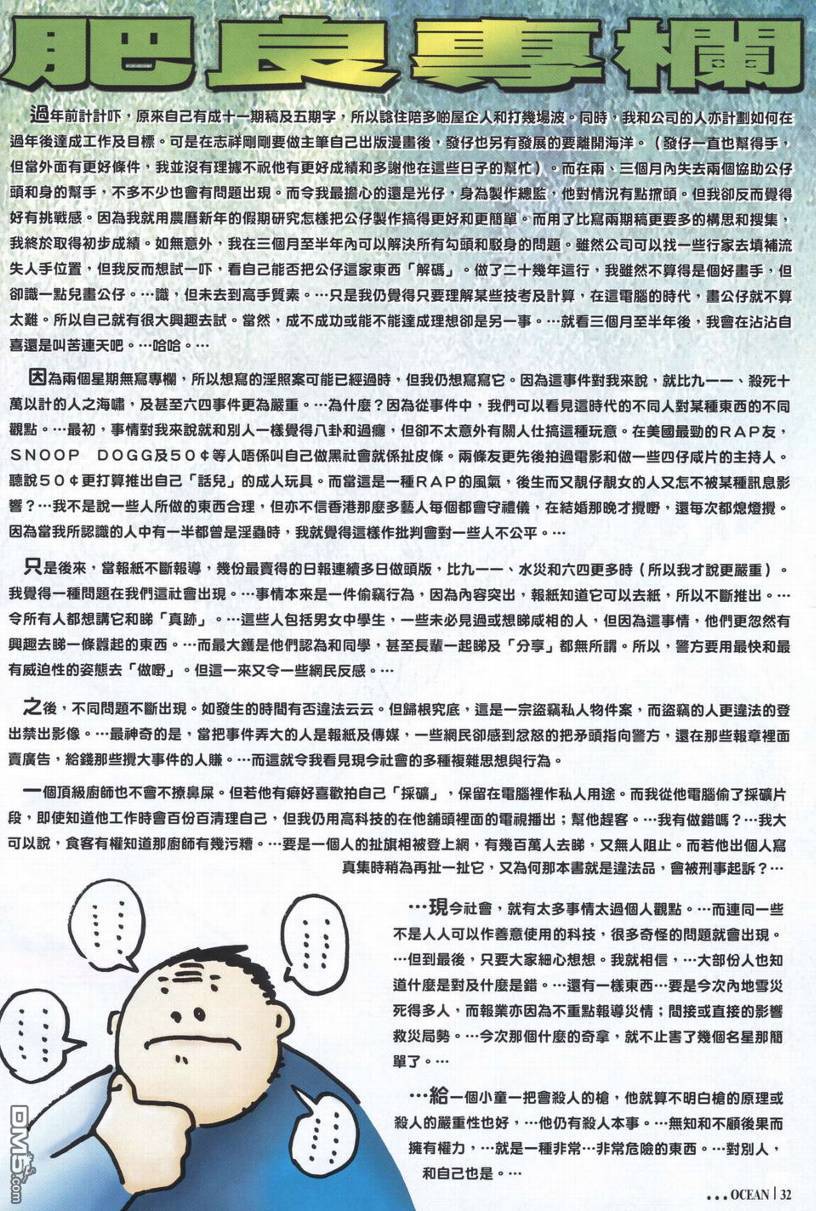 肥良專欄
過年前計計吓，原來自己有成十一期稿及五期字，所以諗住陪多啲屋企人和打幾場波。同時，我和公司的人亦計劃如何在
過年後達成工作及目標。可是在志祥剛剛要做主筆自己出版漫畫後，發仔也另有發展的要離開海洋。（發仔一直也幫得手，
但當外面有更好條件，我並沒有理據不祝他有更好成績和多謝他在這些日子的幫忙）。而在兩、三個月內失去兩個協助公仔
頭和身的幫手，不多不少也會有問題出現。而令我最擔心的還是光仔，身為製作總監，他對情況有點擔頭。但我卻反而覺得
好有挑戰感。因為我就用農曆新年的假期研究怎樣把公仔製作搞得更好和更簡單。而用了比寫兩期稿更要多的構思和搜集，
我終於取得初步成績。如無意外，我在三個月至半年內可以解決所有勾頭和駁身的問題。雖然公司可以找一些行家去填補流
失人手位置，但我反而想試一吓，看自己能否把公仔這家東西「解碼」。做了二十幾年這行，我雖然不算得是個好畫手，但
卻識一點兒畫公仔。…識，但未去到高手質素。…只是我仍覺得只要理解某些技考及計算，在這電腦的時代，畫公仔就不算
太難。所以自己就有很大興趣去試。當然，成不成功或能不能達成理想卻是另一事。…就看三個月至半年後，我會在沾沾自
喜還是叫苦連天吧。…哈哈。…
因為兩個星期無寫專欄，所以想寫的淫照案可能已經過時，但我仍想寫寫它。因為這事件對我來說，就比九一一、殺死十
萬以計的人之海嘯，及甚至六四事件更為嚴重。…為什麼？因為從事件中，我們可以看見這時代的不同人對某種東西的不同
觀點。…最初，事情對我來說就和別人一樣覺得八卦和過癮，但卻不太意外有關人仕搞這種玩意。在美國最勁的RAP友，
SNOOP DOGG及50￠等人唔係叫自己做黑社會就係扯皮條。兩條友更先後拍過電影和做一些四仔咸片的主持人。
聽說50￠更打算推出自己「話兒」的成人玩具。而當這是一種RAP的風氣，後生而又靚仔靚女的人又怎不被某種訊息影
響？…我不是說一些人所做的東西合理，但亦不信香港那麼多藝人每個都會守禮儀，在結婚那晚才攪嘢，還每次都熄燈攪。
因為當我所認識的人中有一半都曾是淫蟲時，我就覺得這樣作批判會對一些人不公平。…
只是後來，當報紙不斷報導，幾份最賣得的日報連續多日做頭版，比九一一、水災和六四更多時（所以我才說更嚴重）。
我覺得一種問題在我們這社會出現。…事情本來是一件偷竊行為，因為內容突出，報紙知道它可以去紙，所以不斷推出。…
令所有人都想講它和睇「真跡」。…這些人包括男女中學生，一些未必見過或想睇咸相的人，但因為這事情，他們更忽然有
興趣去睇一條囂起的東西。…而最大鑊是他們認為和同學，甚至長輩一起睇及「分享」都無所謂。所以，警方要用最快和最
有威迫性的姿態去「做嘢」。但這一來又令一些網民反感。…
之後，不同問題不斷出現。如發生的時間有否違法云云。但歸根究底，這是一宗盜竊私人物件案，而盜竊的人更違法的登
出禁出影像。…最神奇的是，當把事件弄大的人是報紙及傳媒，一些網民卻感到忿怒的把矛頭指向警方，還在那些報章裡面
賣廣告，給錢那些攪大事件的人賺。…而這就令我看見現今社會的多種複雜思想與行為。
一個頂級廚師也不會不撩鼻屎。但若他有癖好喜歡拍自己「採礦」，保留在電腦裡作私人用途。而我從他電腦偷了採礦片
段，即使知道他工作時會百份百清理自己，但我仍用高科技的在他舖頭裡面的電視播出；幫他趕客。…我有做錯嗎？…我大
可以說，食客有權知道那廚師有幾污糟。…要是一個人的扯旗相被登上網，有幾百萬人去睇，又無人阻止。而若他出個人寫
真集時稍為再扯一扯它，又為何那本書就是違法品，會被刑事起訴？…
…現今社會，就有太多事情太過個人觀點。…而連同一些
不是人人可以作善意使用的科技，很多奇怪的問題就會出現。
…但到最後，只要大家細心想想。我就相信，…大部份人也知
道什麼是對及什麼是錯。…還有一樣東西…要是今次內地雪災
死得多人，而報業亦因為不重點報導災情；間接或直接的影響
救災局勢。…今次那個什麼的奇拿，就不止害了幾個名星那簡
單了。…
…給一個小童一把會殺人的槍，他就算不明白槍的原理或
殺人的嚴重性也好，…他仍有殺人本事。…無知和不顧後果而
擁有權力，…就是一種非常…非常危險的東西。…對別人，
和自己也是。…
...OCEAN | 32
DM5.com